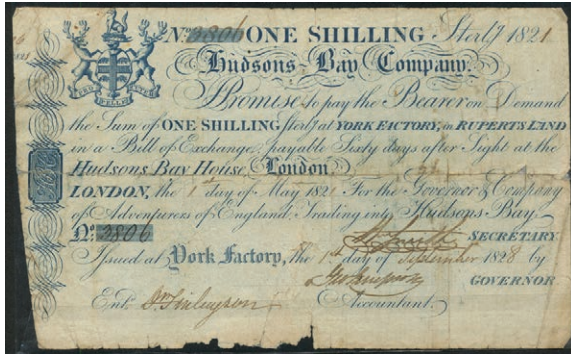 No. 3806 ONE SHILLING Sterlg. 1821
Hudsons Bay Company.
Promise to pay the Bearer on Demand
the Sum of ONE SHILLING sterlg. at YORK FACTORY, in RUPERTS LAND
in a Bill of Exchange payable Sixty days after Sight at the
Hudsons Bay House, London.
LONDON, the 1st day of May 1821 For the Governor & Company
of Adventurers of England, Trading into Hudsons Bay.
No. 3806
SECRETARY
Issued at York Factory, the 1st day of September 1828 by
GOVERNOR
Ent. Finlayson Accountant.